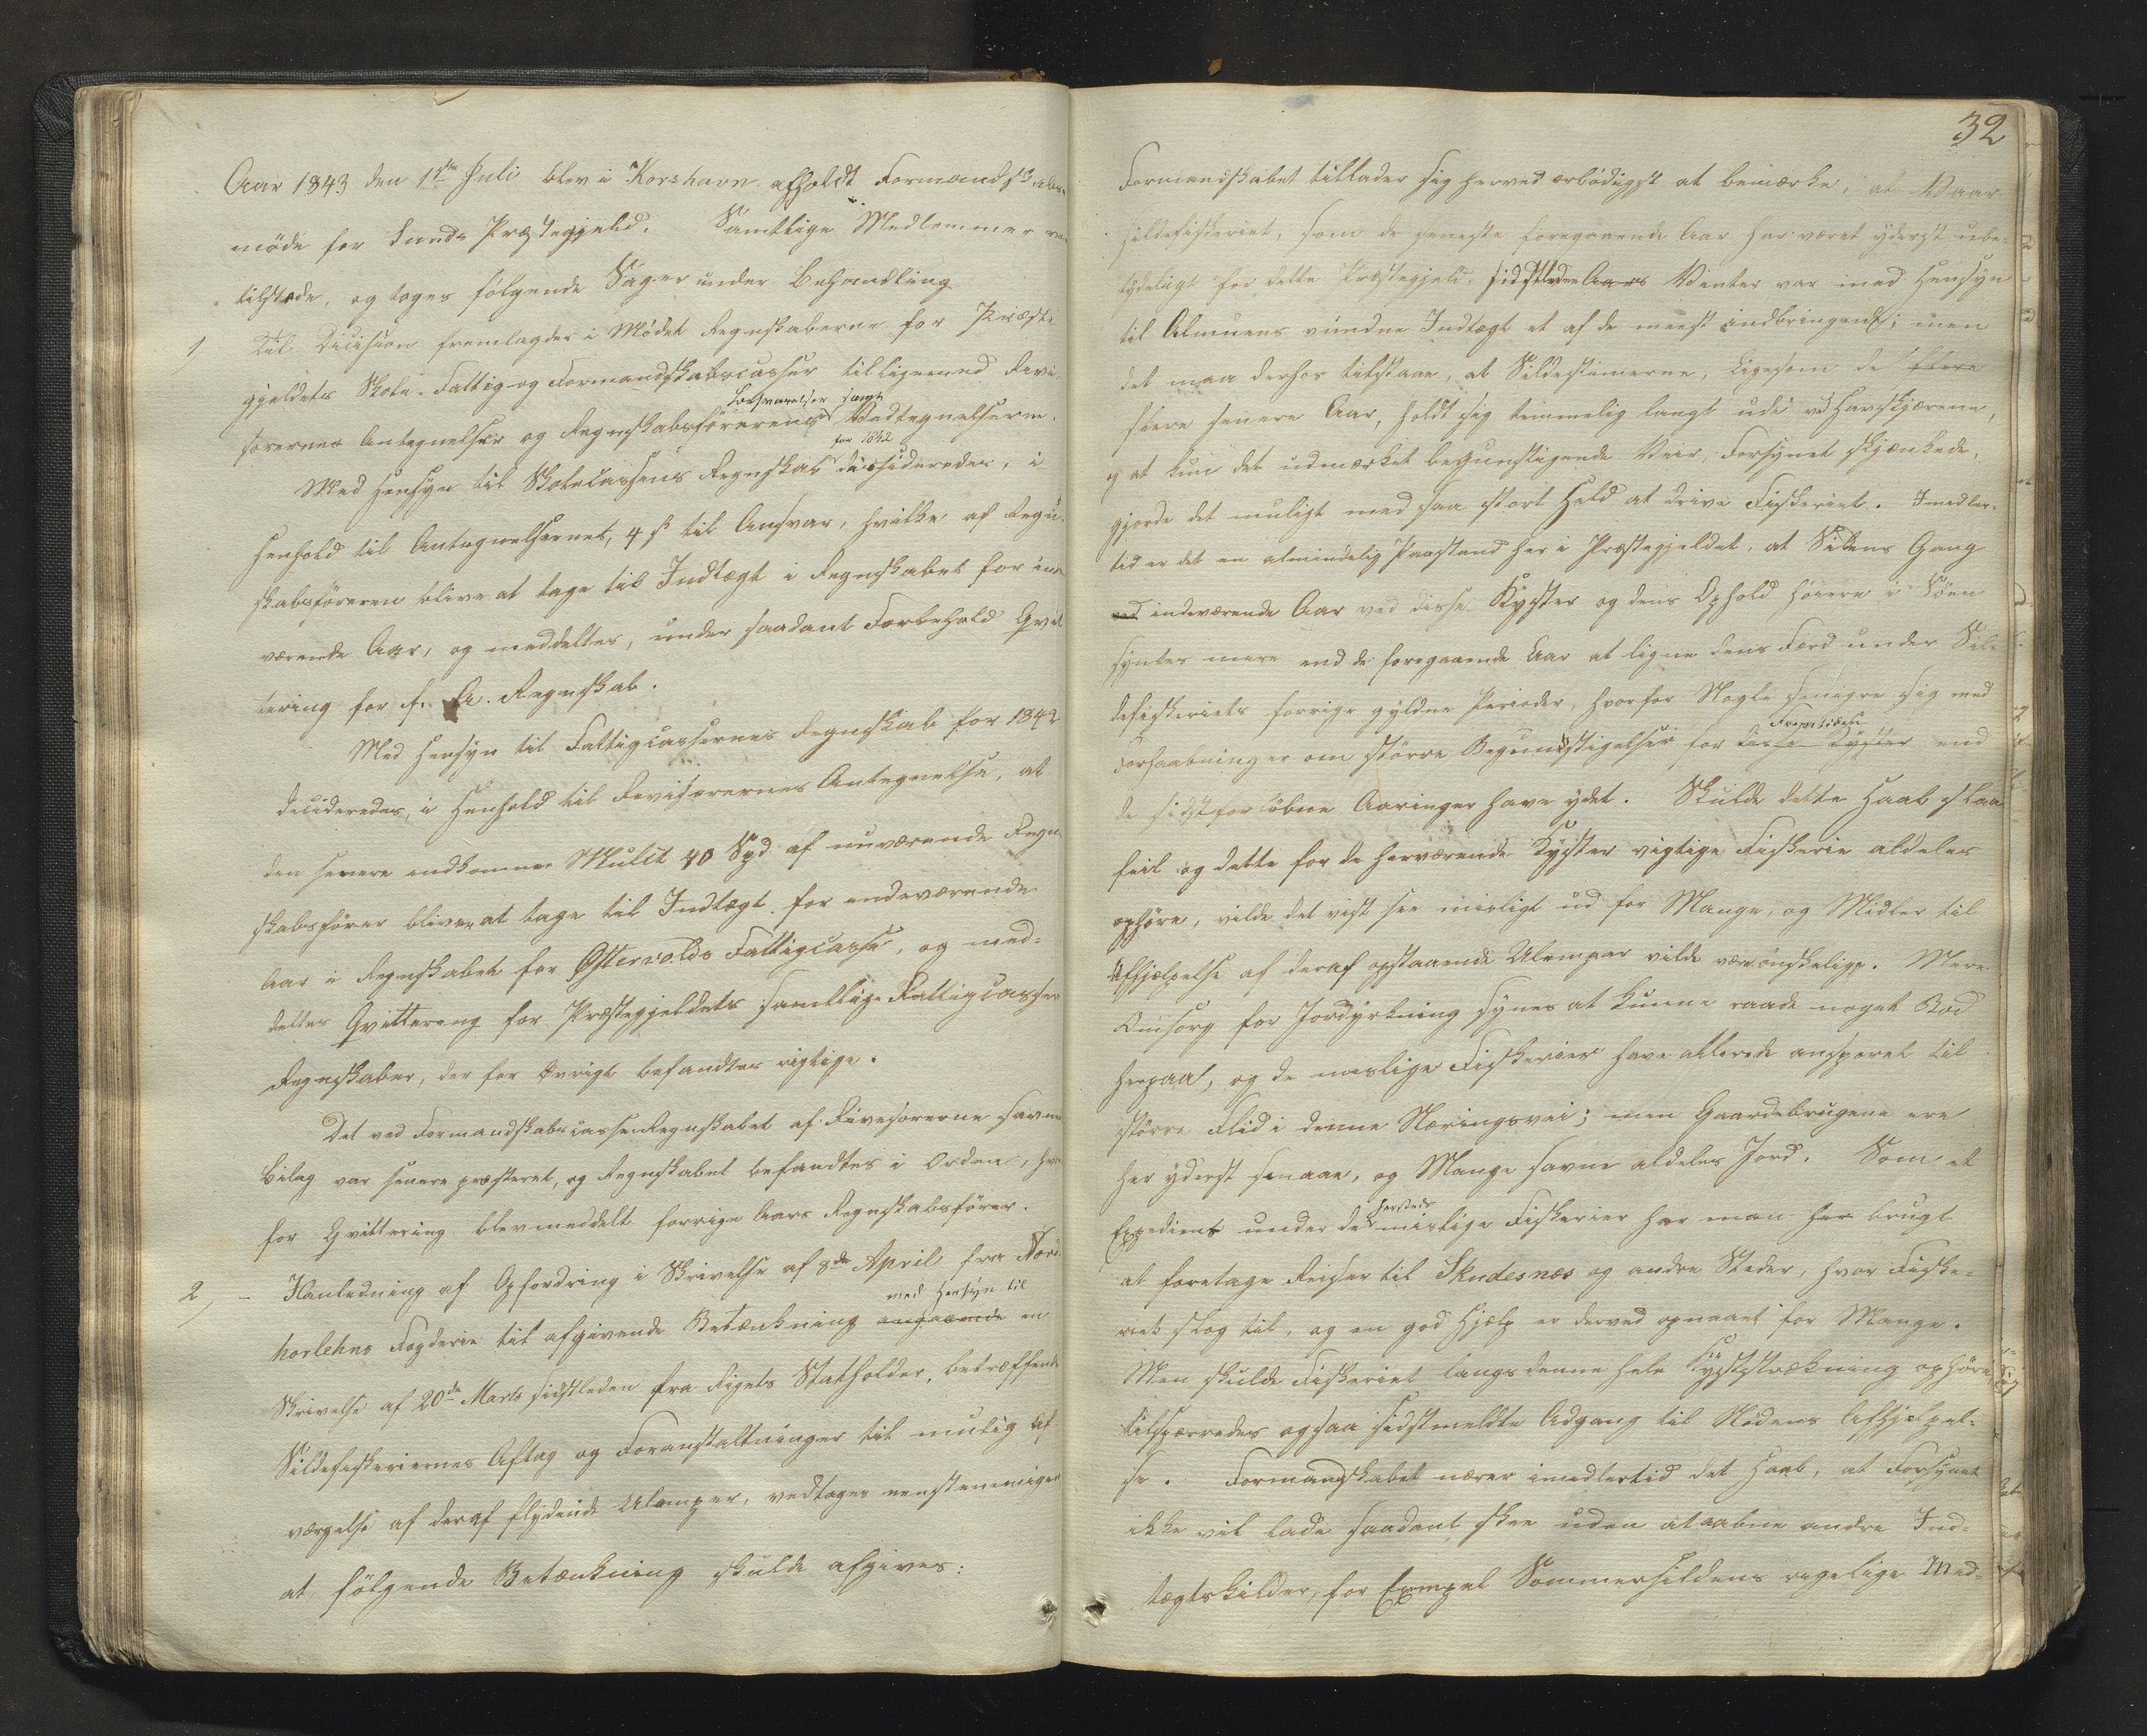 Aar 1843 den 1ste Juli blev i Korshavn afholdt Formandskabs-
möde for Sunds Præstegjeld. Samtlige Medlemmer var
tilstede, og toges følgende Sager under Behandling
1 Til Decision fremlagdes i Mödet Regnskaberne for Præste
gjeldets Skole- Fattig- og Formandskabscasser tilligemed Revi-
Besvarelser samt
sorernes Antegnelser og Regnskabsförerens Vedtegnelserne.
for 1842
Med Hensyn til Skolecassens Regnskab decideredes, i
Henhold til Antegnelsernes, 4 ß til Ansvar, hvilke af Regn-
skabsföreren blive at tage til Indtægt i Regnskabet for inde
værende Aar, og meddeltes, under saadant Forbehold Qvit
tering for f. A. Regnskab.
Med Hensyn til Fattigcassernes Regnskab for 1842
decideredes, i Henhold til Revisorernes Antegnelse, at
den senere indkomne Mulct 40 Spd af nuværende Regn-
skabsförer bliver at tage til Indtægt for indeværende
Aar i Regnskabet for Østervolds Fattigcasse, og med-
deltes Qvittering for Præstegjeldets samtlige Fattigcassers
Regnskaber, der for Øvrigt befandtes rigtige.
Det ved Formandskabscasseregnskabet af Revisorerne savnede
Bilag var senere præsteret, og Regnskabet befandtes i Orden, hvor
for Qvittering blev meddelt forrige Aars Regnskabsförer.
2, - I Anledning af Opfordring i Skrivelse af 8de April fra Nord
med Hensyn til
horlehns Fogderie til afgivende Betænkning angaaende en
Skrivelse af 20de Marts sidstleden fra Rigets Statholder, betræffende
Sildefiskeriernes Aftag og Foranstaltninger til mulig Af
værgelse af deraf flydende Ulemper, vedtoges eenstemmigen
at følgende Betænkning skulde afgives:
32
Formandskabet tillader sig herved ærbödigst at bemærke, at Vaar
sildefiskeriet, som de seneste foregaaende Aar har været yderst ube-
tydeligt for dette Præstegjeld, sidstleden Aars Vinter var med Hensyn
til Almuens vundne Indtægt et af de meest indbringende; men
det maa derhos tilstaae, at Sildestimerne, ligesom de flere
flere senere Aar, holdt sig temmelig langt ude ved Havskjærene,
og at kun det udmærket begunstigende Veir, Forsynet skjænkede,
gjorde det muligt med saa stort Held at drive Fiskeriet. Imidler-
tid er det en almindelig Paastand her i Præstegjeldet, at Sildens Gang
ved indeværende Aar ved disse Kyster og dens Ophold höiere i Söen
syntes mere end de foregaaende Aar at ligne dens Færd under Sil-
defiskeriets forrige gyldne Perioder, hvorfor Nogle smigre sig med
Forhaabninger om större Begunstigelser for disse Kyster end
de sidst forløbne Aaringer have ydet. Skulde dette Haab slaa
feil og dette for de herværende Kyster vigtige Fiskerie aldeles
ophöre, vilde det vist see misligt ud for Mange, og Midler til
Afhjelpelse af deraf opstaaende Ulemper vilde være önskelige. Mere
Omsorg for Jorddyrkning synes at kunne raade noget Bod
herpaa, og de mislige Fiskerier have allerede ansporet til
större Flid i denne Næringsvei; men Gaardebrugene ere
her yderst smaae, og Mange savne aldeles Jord. Som et
hersteds
Expediens under de mislige Fiskerier har man her brugt
at foretage Reiser til Skudesnæs og andre Steder, hvor Fiske-
riet slog til, og en god Hjelp er derved opnaaet for Mange.
Men skulde Fiskeriet langs denne hele Kyststrækning ophöre,
tilspærredes ogsaa sidstmeldte Adgang til Nödens Afhjelpel-
se. Formandskabet nærer imidlertid det Haab, at Forsynet
ikke vil lade saadant skee uden at aabne andre Ind-
tægtskilder, for Exempel Sommersildens rigelige Med-